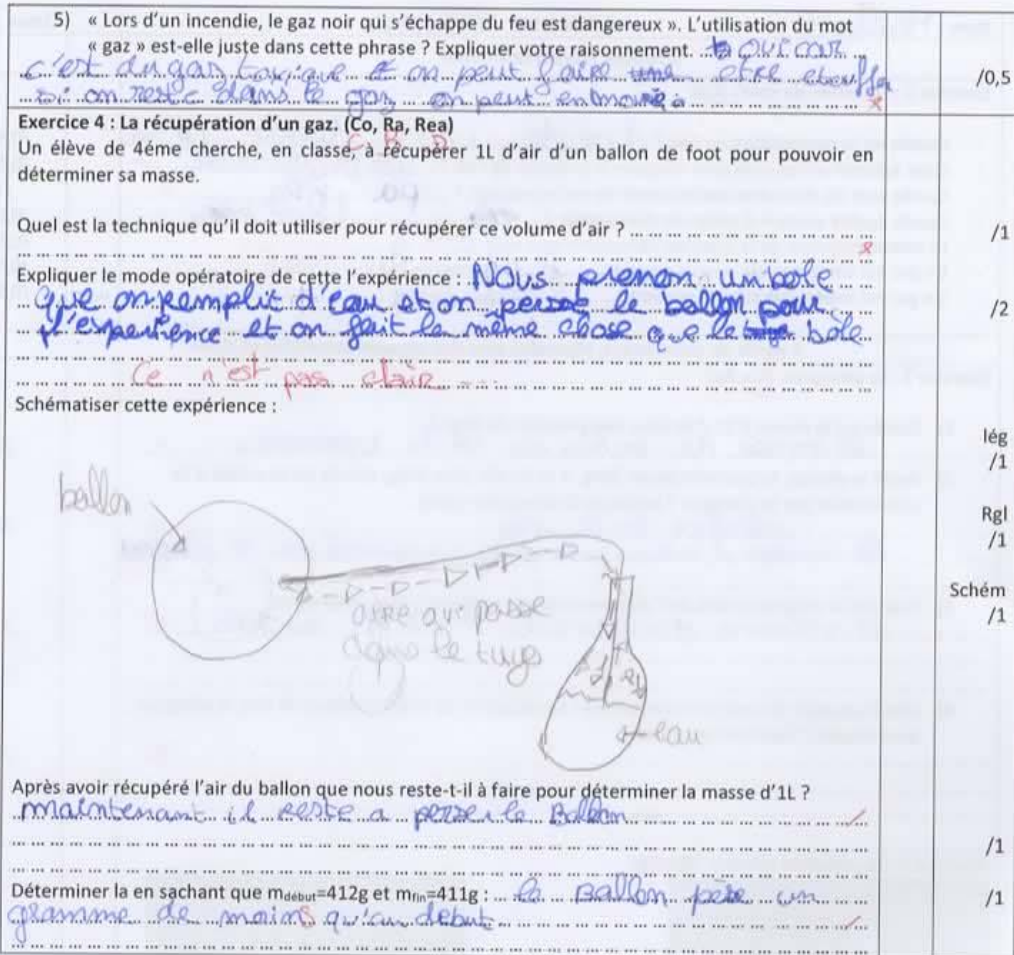 5) « Lors d'un incendie, le gaz noir qui s'échappe du feu est dangereux ». L'utilisation du mot
« gaz » est-elle juste dans cette phrase ? Expliquer votre raisonnement. oui car
c'est du gaz toxique et on peut faire une etre etouffer
si on reste dans le gaz on peut en mourir
/0,5
Exercice 4 : La récupération d'un gaz. (Co, Ra, Rea)
Un élève de 4éme cherche, en classe, à récupérer 1L d'air d'un ballon de foot pour pouvoir en
déterminer sa masse.
Quel est la technique qu'il doit utiliser pour récupérer ce volume d'air ?
/1
Expliquer le mode opératoire de cette l'expérience : Nous prenon un bole
que on remplit d'eau et on perse le ballon pour
l'experience et on fait le même chose que le bole
/2
Ce n'est pas clair
Schématiser cette expérience :
lég
/1
Rgl
/1
Schém
/1
ballon
aire qui passe
dans le tuyo
eau
Après avoir récupéré l'air du ballon que nous reste-t-il à faire pour déterminer la masse d'1L ?
maintenant il reste a peser le Ballon
/1
Déterminer la en sachant que mdébut=412g et mfin=411g : le Ballon pèse un
gramme de moins qu'au debut
/1